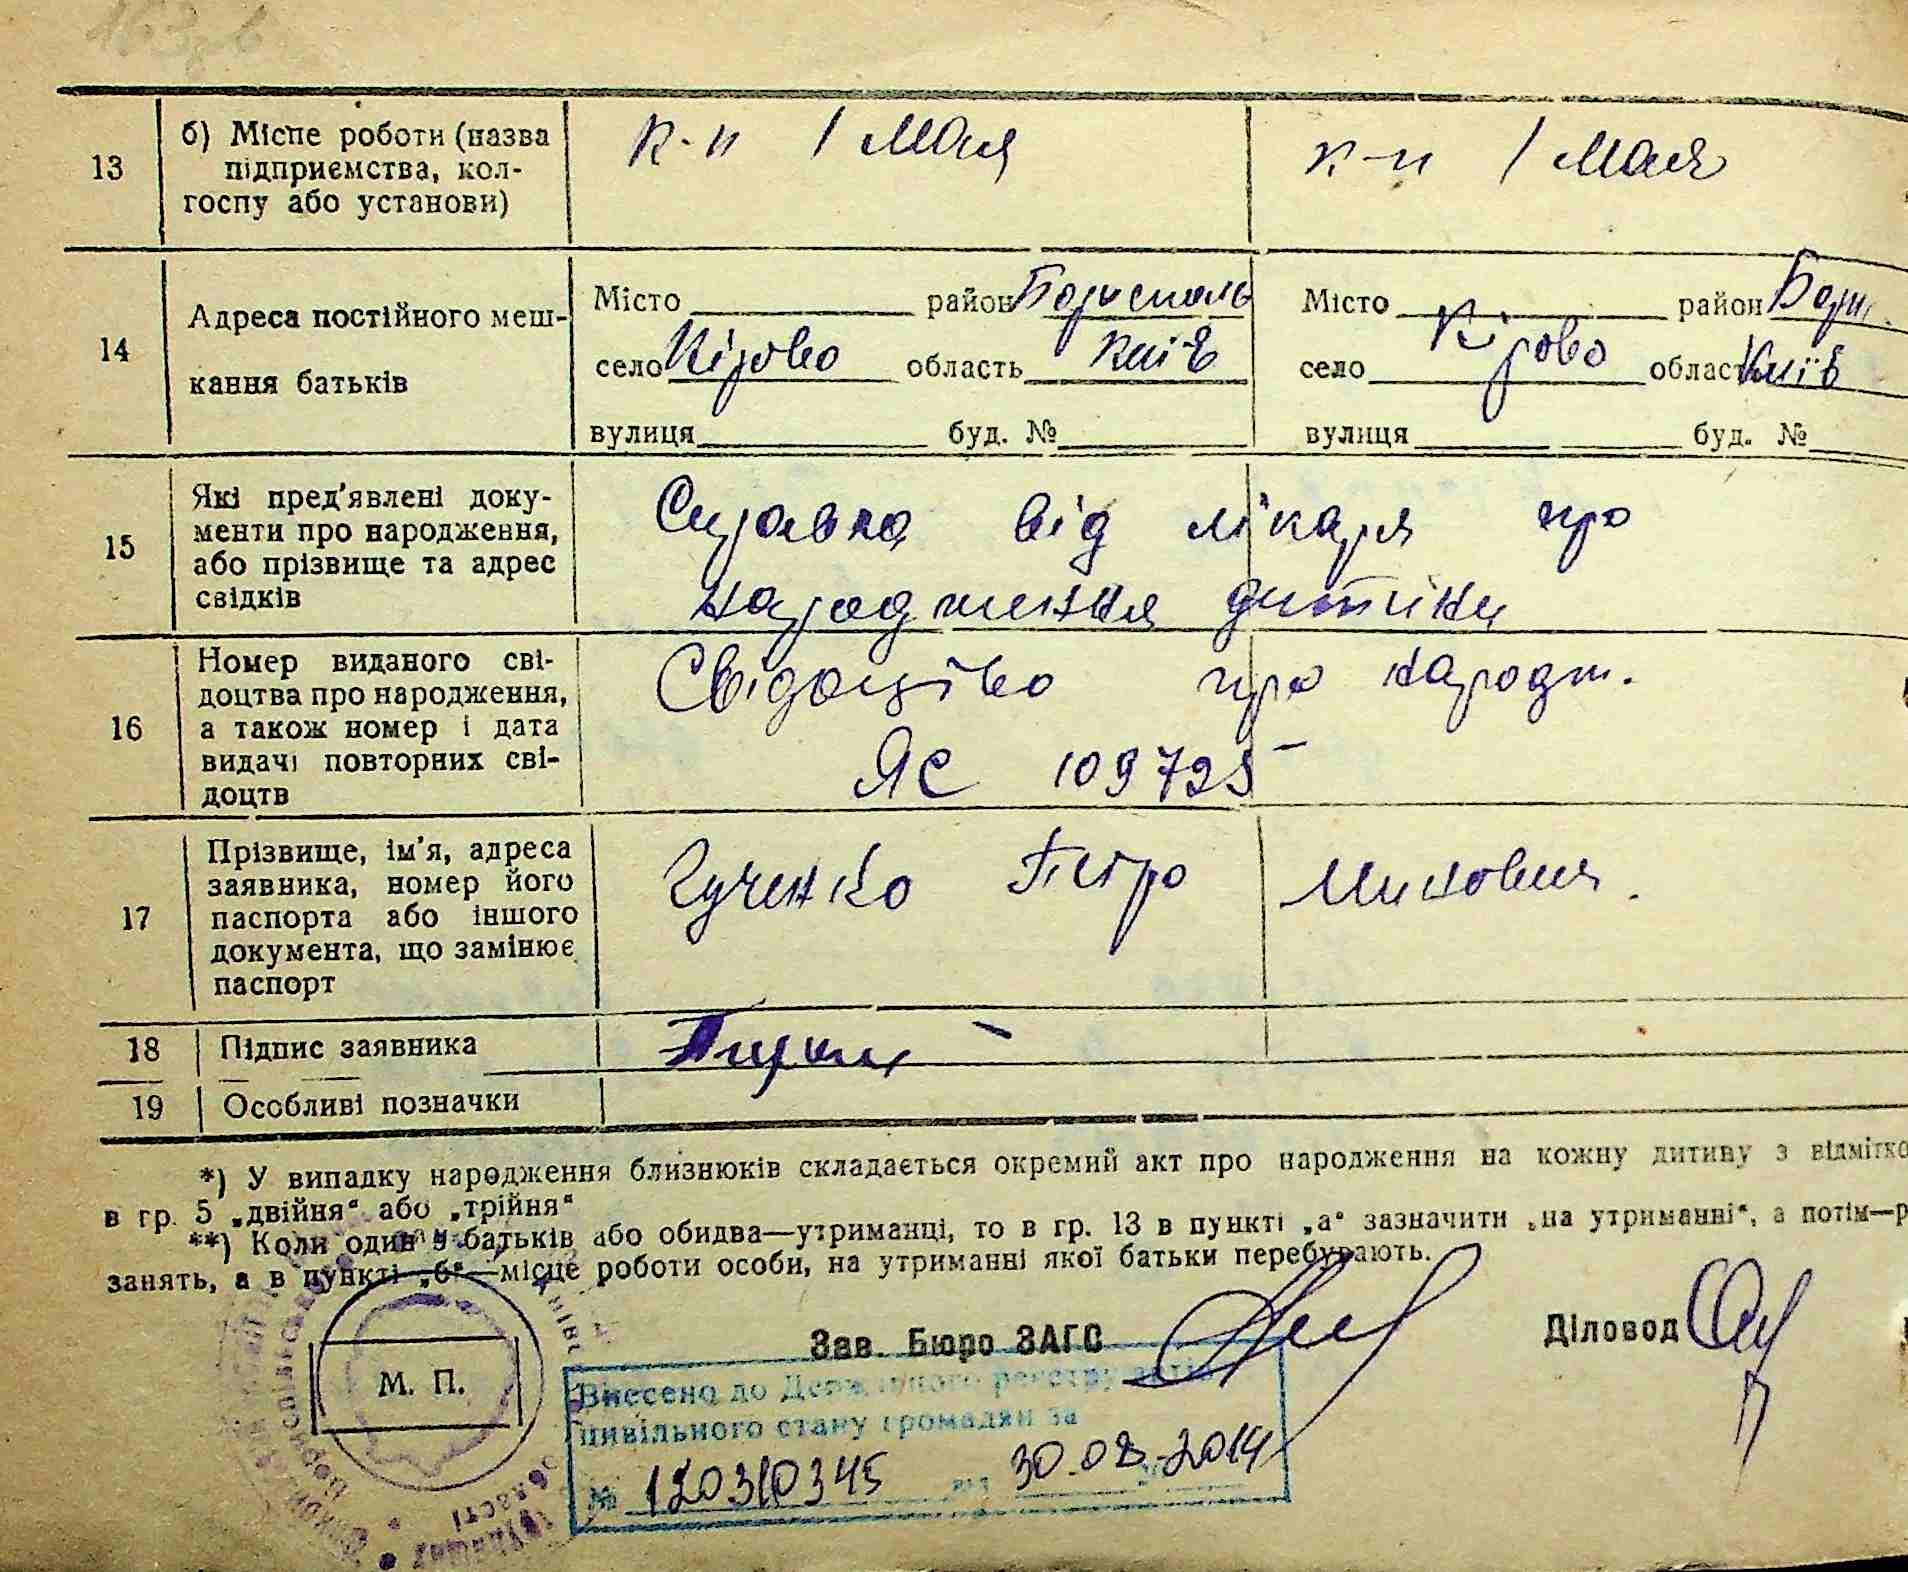 13
б) Місце роботи (назва
підприємства, кол-
госпу або установи)
к-п 1 мая
к-п 1 мая
14
Адреса постійного меш-
кання батьків
Місто район Бориспль
село Кірово область Київ
вулиця буд. №
Місто район Бори.
село Кірово област Київ
вулиця буд. №
15
Які пред'явлені доку-
менти про народження,
або прізвище та адрес
свідків
Справка від лікаря про
народження дитини
16
Номер виданого сві-
доцтва про народження,
а також номер і дата
видачі повторних сві-
доцтв
Свідоцтво про народж.
ЯС 109725
17
Прізвище, ім'я, адреса
заявника, номер його
паспорта або іншого
документа, що замінює
паспорт
Гученко Петро
18
Підпис заявника
19
Особливі позначки
*) У випадку народження близнюків складається окремий акт про народження на кожну дитину з відмітко
в гр. 5 „двійня“ або „трійня“
**) Коли один з батьків або обидва—утриманці, то в гр. 13 в пункті „а“ зазначити „на утриманні“, а потім—р
занять, а в пункті „б“—місце роботи особи, на утриманні якої батьки перебувають.
Зав. Бюро ЗАГС
Діловод
М. П.
Внесено до Державного реєстру актів
цивільного стану громадян за
№ 120310345 від 30.08.2014
області